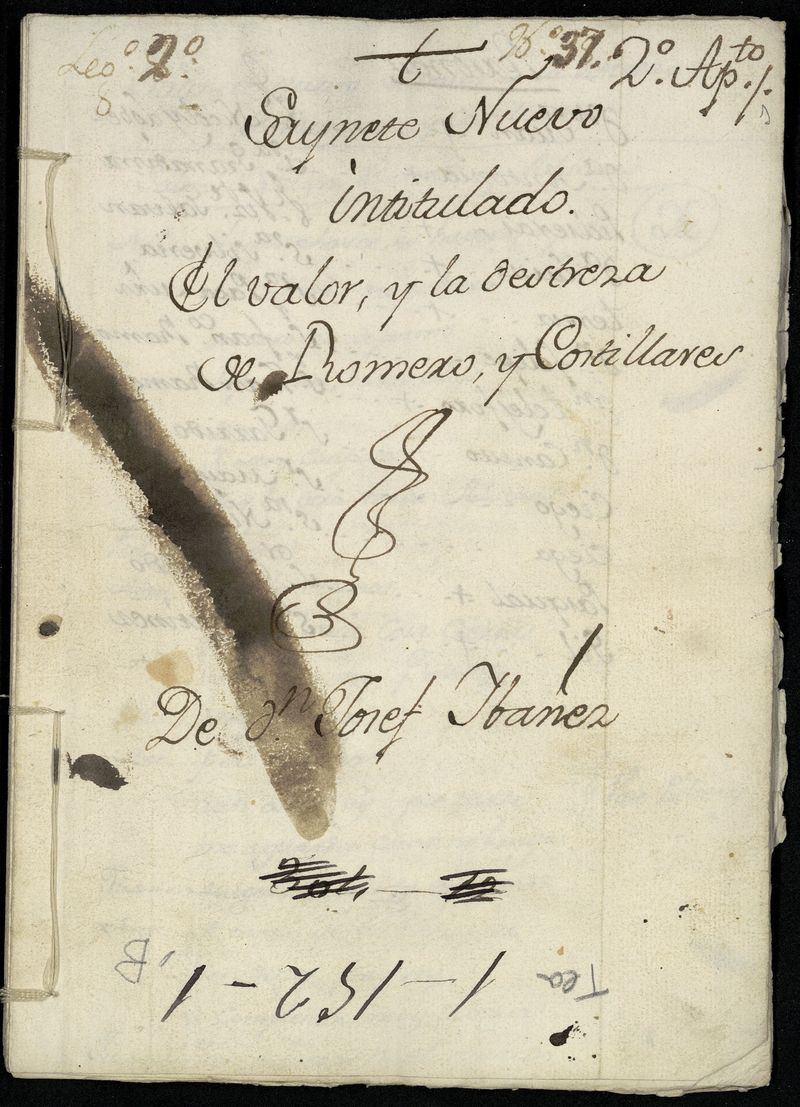 Leg.º 2.º
N.º 37. 2.º Ap.to 1.
Saynete Nuevo
intitulado.
El valor, y la destreza
de Romero, y Costillares
De d.n Josef Ibañez
Tea 1-152-1, B